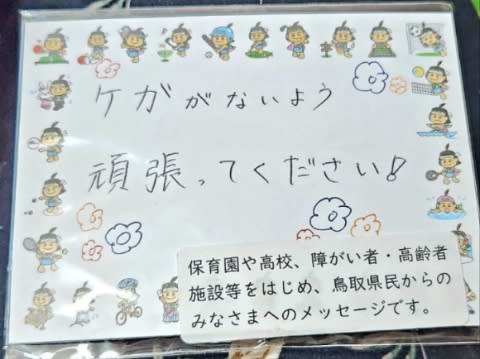 ケガがないよう
頑張ってください!
保育園や高校、障がい者・高齢者
施設等をはじめ、鳥取県民からの
みなさまへのメッセージです。